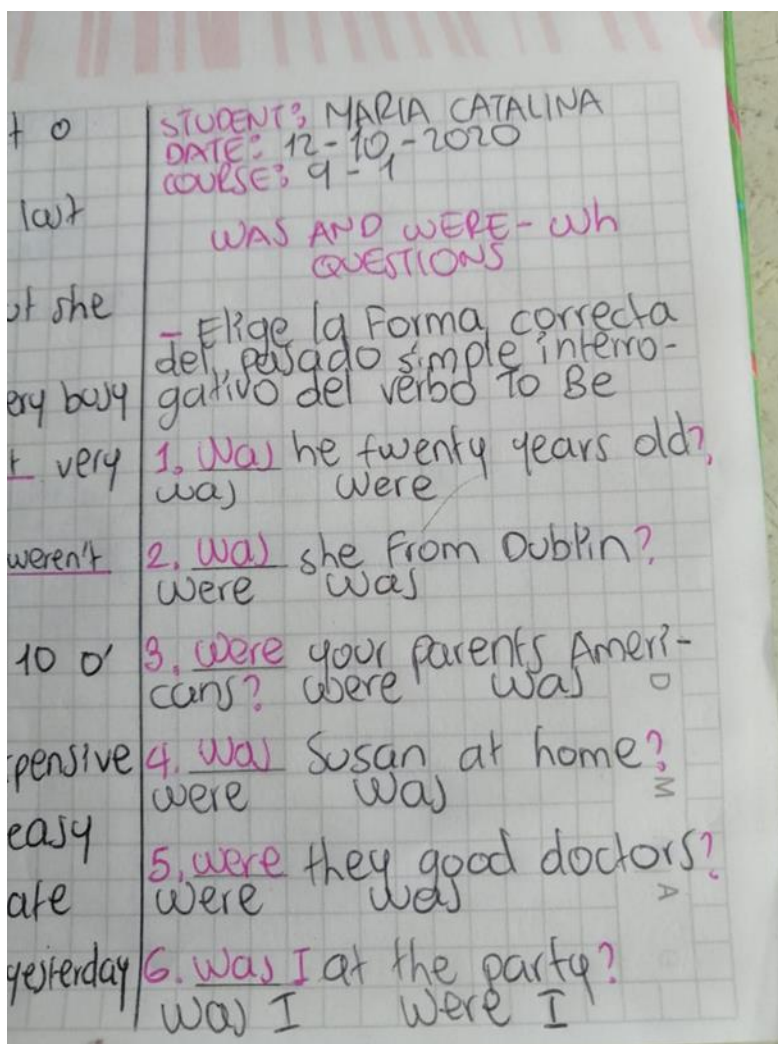 t o
last
ot she
ery busy
t very
weren't
10 o'
pensive
easy
ate
yesterday
STUDENT: MARIA CATALINA
DATE: 12-10-2020
COURSE: 9-1
WAS AND WERE - Wh
QUESTIONS
- Elige la Forma correcta
del pasado simple interro-
gativo del verbo To Be
1. Was he twenty years old?
was were
2. was she From Dublin?
were was
3. were your parents Ameri-
cans? were was
4. was Susan at home?
were was
5. were they good doctors?
were was
6. was I at the party?
was I were I
D
M
A